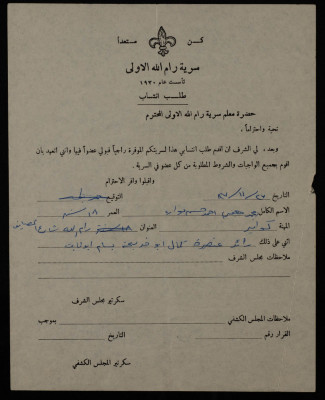 كن مستعداً
سرية رام الله الاولى
تأسست عام ١٩٣٠
طلب انتساب
حضرة معلم سرية رام الله الاولى المحترم
تحية واحتراماً،
وبعد، لي الشرف ان اقدم طلب انتسابي هذا لسريتكم الموقرة راجياً قبولي عضواً فيها واني اتعهد بأن
اقوم بجميع الواجبات والشروط المطلوبة من كل عضو في السرية.
واقبلوا وافر الاحترام
التاريخ التوقيع
الاسم الكامل العمر ١٨ سنه
المهنة العنوان رام الله شارع
اثني على ذلك كمال ابو بسام
ملاحظات مجلس الشرف
سكرتير مجلس الشرف
ملاحظات المجلس الكشفي بموجب
القرار رقم التاريخ
سكرتير المجلس الكشفي